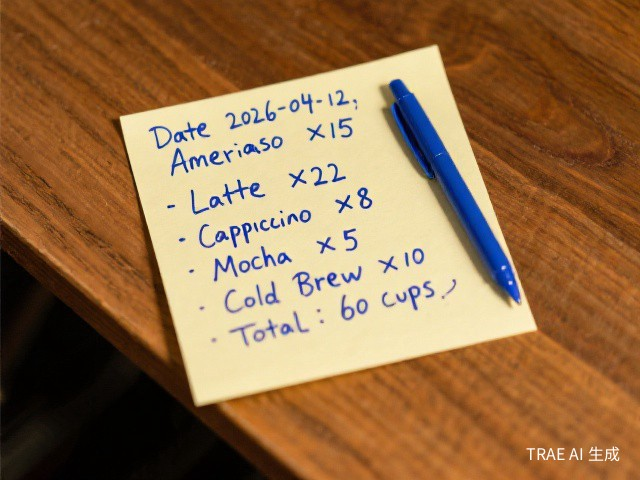 Date 2026-04-12,
Ameriaso ×15
- Latte ×22
· Cappiccino ×8
· Mocha ×5
· Cold Brew ×10
· Total: 60 cups.
TRAE AI 生成